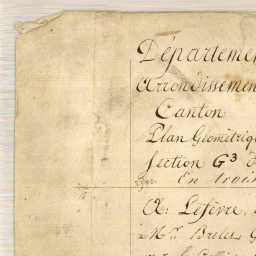 Départemen
Arrondissemen
Canton
Plan Géométriq
Section G3
En trois
A. Lefèvre.
Mr. Brelet G